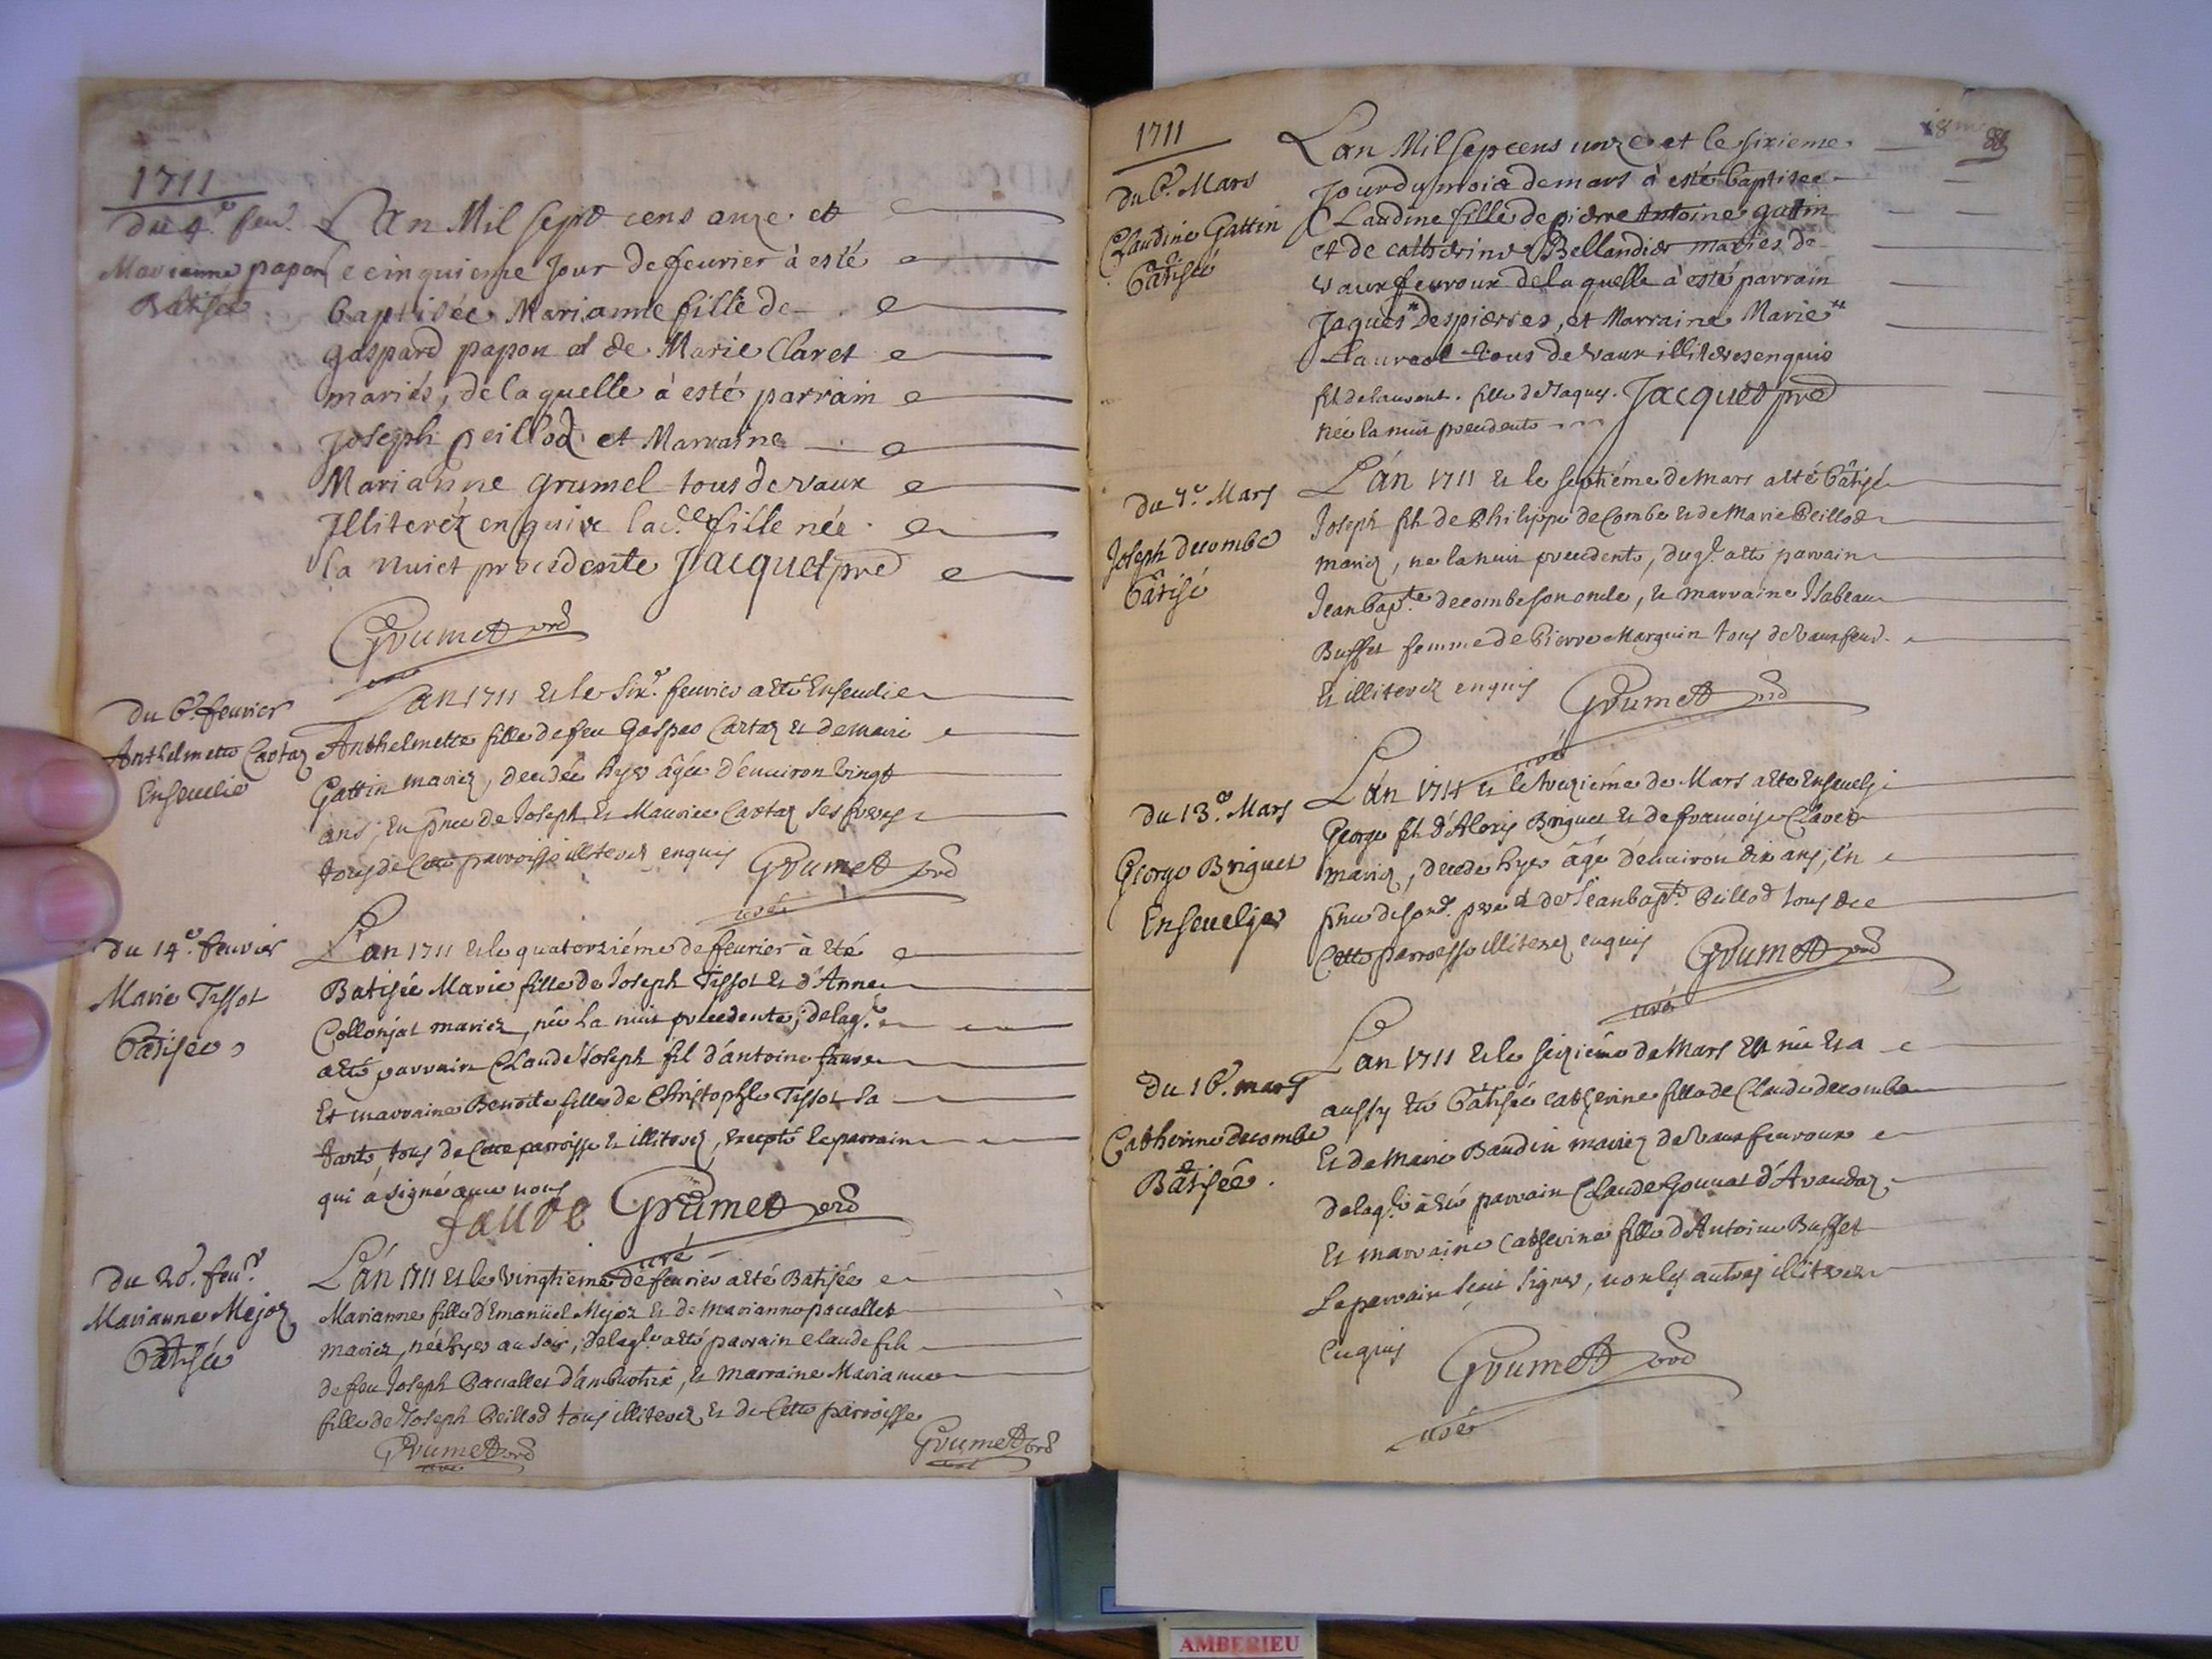 1711
du 4.e feu.r
Marianne papon
Batisée
L An Mil sept cens onze et
le cinquieme Jour de feurier à esté
baptisée Marianne fille de
gaspard papon et de Marie Claret
mariés, de laquelle à esté parrain
Joseph peillod et Marraine
Marianne grumel tous de vaux
Jlliteréz enquis lad.e fille née
la nuict precedente Jacquet pre
Grumet
curé
du 6.e feurier
Anthelmette Cartaz
Enseuelie
L'an 1711 et le six.e feurier a été Enseuelie
Anthelmette fille de feu Gaspar Cartaz et de marie
Gattin mariez, decedée hyer âgée d'enuiron vingt
ans; En pnce de Joseph et Maurice Cartaz ses freres
tous de Cette parroisse illiterez enquis Grumet
curé
du 14.e feurier
Marie Tissot
Batisée
L'an 1711 et le quatorziéme de feurier à été
Batisée Marie fille de Joseph Tissot et d'Anne
Collonjat mariez, née la nuit precedente; delaq.e
a été parrain Claude Joseph fil d'antoine faure
Et marraine Benoite fille de Christophle Tissot sa
tante, tous de Cette parroisse et illiterez, excepté le parrain
qui a signé auec nous
faure Grumet
curé
du 20.e feu.r
Marianne Mejoz
Batisée
L'án 1711 et le vingtieme de feurier a été Batisée
Marianne fille d'Emanüel Mejoz et de marianne pauallet
mariez, née hyer au soir; delaq.le a été parrain Claude fils
de feu Joseph Pauallet d'ambutrix, et marraine Marianne
fille de Joseph Peillod tous illiterez et de Cette parroisse
Grumet
curé
Grumet
curé
1711
du 6.e Mars
Claudine Gattin
Batisée
88
Lan Mil sep cens unze et le sixieme
Jour du mois de mars à esté baptisée
Claudine fille de pierre Antoine gattin
et de catherine Bellandier mariés de
vaux feuroux de laquelle à esté parrain
Jaques * Despierres, et Marraine Marie *
Laureol tous de vaux illiteres enquis
fil de laurent. fille de Jaques. Jacquet pre
née la nuit precedente
du 7.e Mars
Joseph decombe
batisé
L'án 1711 et le septiéme de mars a été bâtisé
Joseph fil de Philippe decombe et de Marie Peillod
mariez, ne la nuit precedente, duq.l a été parrain
Jean bap.te decombe son oncle, et marraine Isabeau
Buffet femme de Pierre Marguin tous de Vaux feur.
et illiterez enquis Grumet
curé
du 13.e Mars
George Briguet
Enseuely
L'án 1711 et le treiziéme de Mars a été Enseuely
George fil d'Alexis Briguet et de françoise Claret
mariez, decede hyer âgé d'enuiron dix ans; En
pnce de son d. pere et de Jean bap.te Peillod tous de
Cette parroisse illiterez enquis Grumet
curé
du 16.e mars
Catherine decombe
Batisée.
L'an 1711 et le seiziéme de Mars est née et a
aussy été bâtisée catherine fille de Claude decombe
Et de Marie Baudin mariez de vaux feuroux
delaq.le a été parrain Claude Gonnat d'Arandaz
et marraine catherine fille d'Antoine Buffet
Le parrain seut signer, non les autres illiterez
enquis Grumet
curé
AMBERIEU